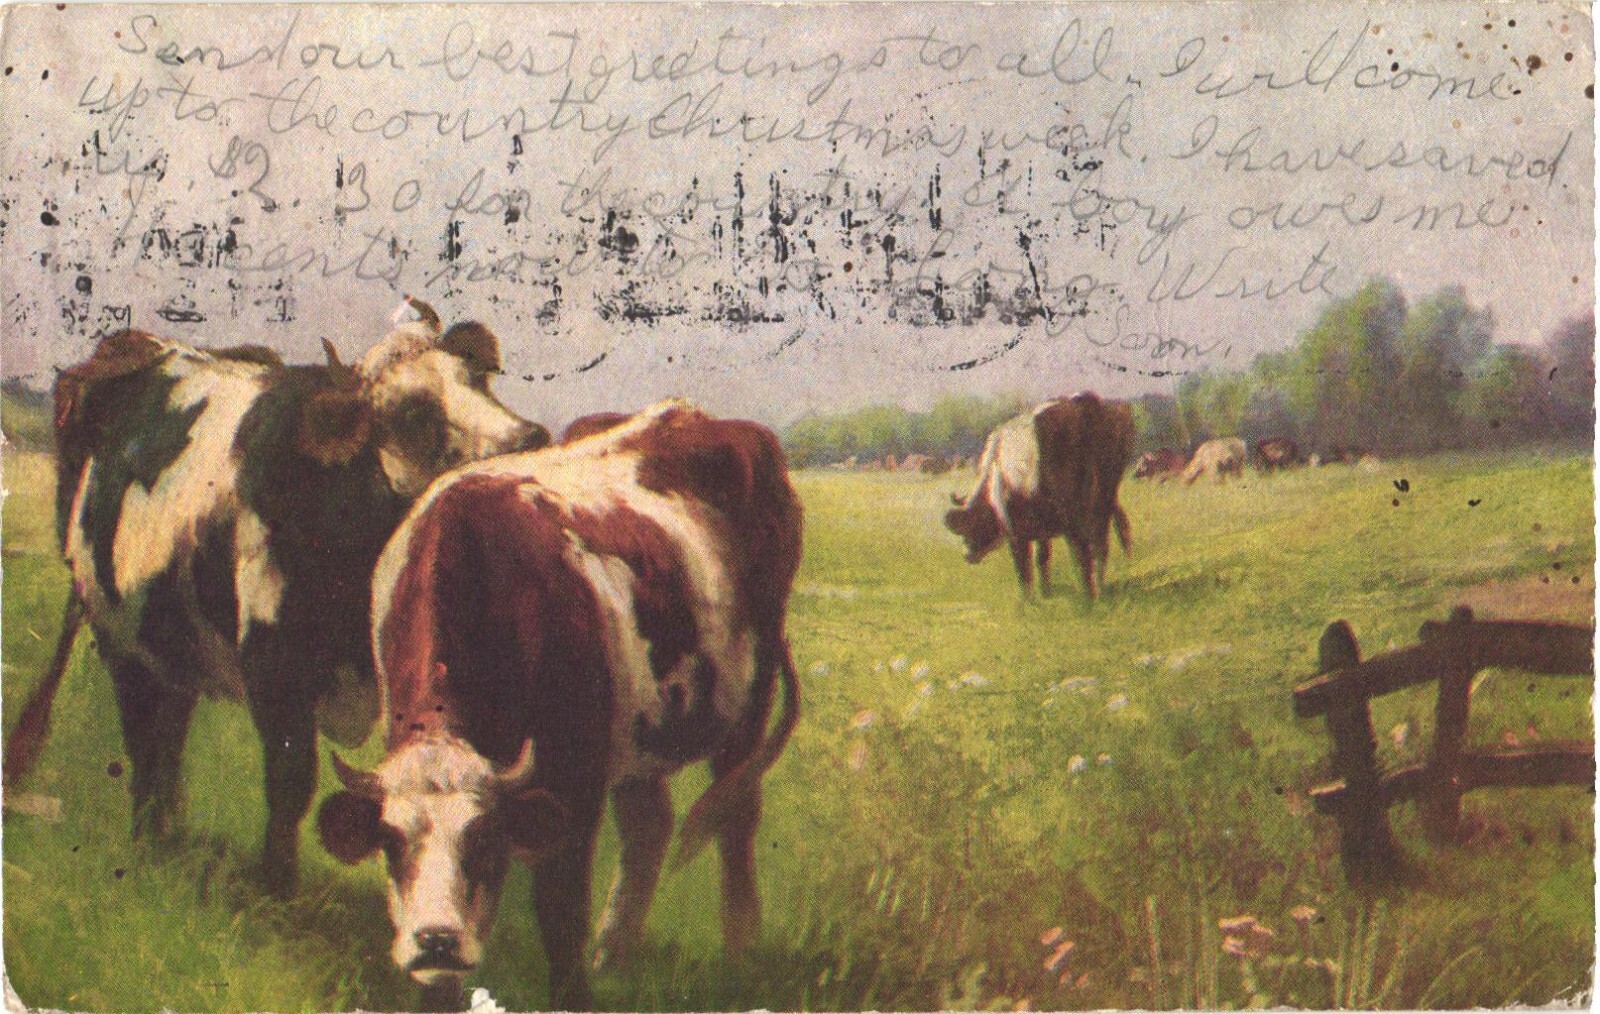 Send our best greetings to all. I will come
up to the country Christmas week. I have saved
up $2.30 for the country. A boy owes me
cents so long. Write
Soon.